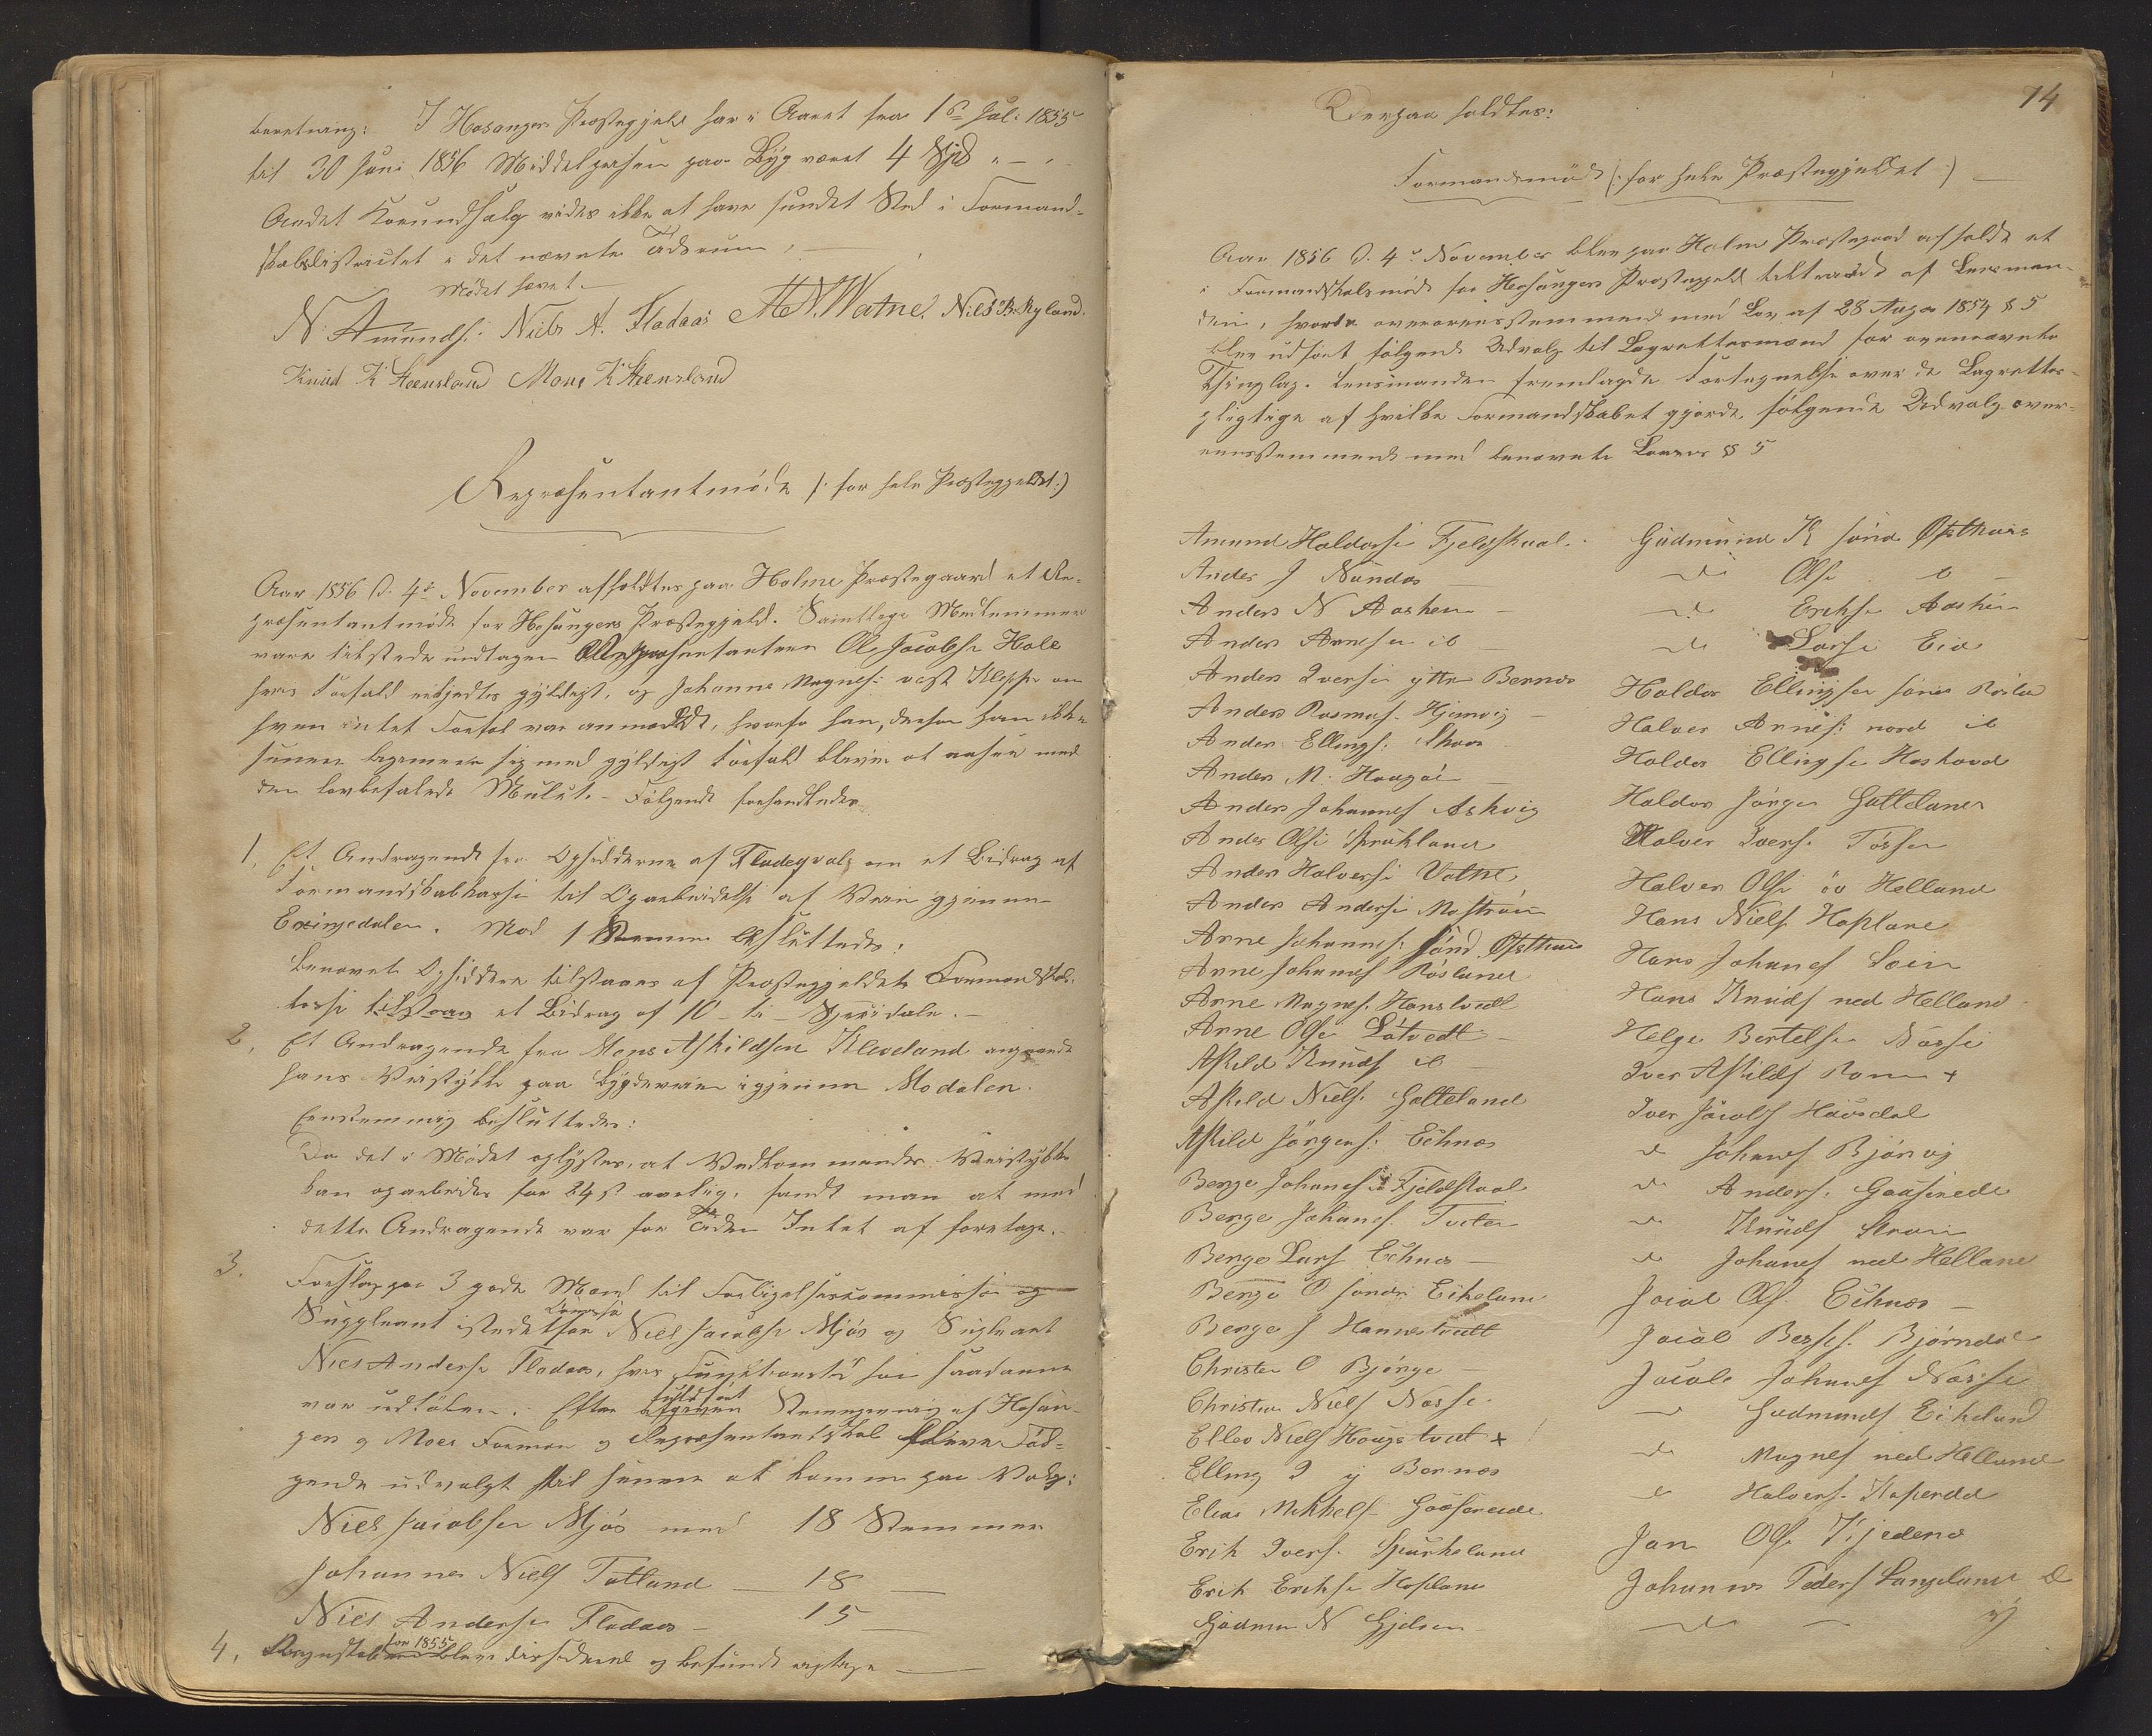 beretning: I Hosanger Præstegjeld har i Aaret fra 1ste Juli 1855
til 30 Juni 1856 Middelprisen paa Byg været 4 Spd " - "
Andet Kornudsalg vides ikke at have fundet Sted i Formand-
skabsdistrictet i det nævnte Tidsrum,
Mødet hævet.
N. Amunds: Niels A. Fladaas A N. Watne. Niels B. Ryland.
Knud K Steensland Mons K Steensland
Repræsentantmøde (: for hele Præstegjeldet:)
Aar 1856 d. 4de November afholdtes paa Holme Præstegaard et Re-
præsentantmøde for Hosangers Præstegjeld. Samtlige Medlemmer
vare tilstede undtagen Repræsentanten Ole Jacobsen Hole
hvis Forfald ansaaes gyldigt, og Johannes Magnes: Kleppe om
hvem intet Forfal var anmeldt, hvorfor han, dersom han ikke
senere legemerer sig med gyldigt Forfald bliver at ansee med
den lovbefalede Mulct. - Følgende forhandledes
1, Et Andragende fra Opsidderne af om et Bidrag af
Formandskabskassen til Oparbeidelse af Veien gjennem
Exingedalen. Mod 1 Stemme besluttedes:
Benævnte Opsiddere tilstaaes af Præstegjeldets Formandskabs-
kasse et Bidrag af 10 - ti - Speciedaler. -
2, Et Andragende fra Mons Askildsen Kleveland angaaende
hans Veistykke paa Bygdeveien igjennem Modalen.
Eenstemmig besluttedes:
Da det i Mødet oplystes, at Vedkommendes Veistykke
kan oparbeides for 24 s aarlig, fandt man at med
dette Andragende var for Tiden Intet at foretage.
3. Forslag paa 3 gode Mænd til Forligelseskommissær og
Suppleant istedetfor Niels Jacobsen Mjøs og Supleant
Niels Andersen Fladaas, hvis Funktionstid som saadanne
var udløben. Efter Stemmegivning af Hosan-
ger og Moes Formænd og Repræsentantskab bleve Føl-
gende udvalgt til at komme paa Valg:
Niels Jacobsen Mjøs med 18 Stemmer
Johannes Niels Tatland — 18 —
Niels Andersen Fladaas — 15 —
4, Regnskab for 1855 blev og befundt rigtige
74
Derpaa holdtes:
Formandsmøde (: for hele Præstegjeldet :)
Aar 1856 d. 4de November blev paa Holme Præstegaard afholdt et
Formandskabsmøde for Hosangers Præstegjeld tiltraadt af Lensman-
den, hvorda overensstemmende med Lov af 28 Aug 1854 § 5
blev udført følgende Udvalg til Lagrettesmænd for ovennævnte
Thinglag. Lensmanden fremlagde Fortegnelse over de Lagrettes-
pligtige af hvilke Formandskabet gjorde følgende Udvalg over-
eensstemmende med benævnte Lovens § 5
Amund Haldorsen Fjeldskaal.
Anders J Nundas
Anders N Aasheim
Anders Arnesen ib
Anders Iversen yttre Bernæs
Anders Rasmus. Hjemvig
Anders Ellings: Skaar
Anders M. Haugøe
Anders Johannes Askvig
Anders Olsen
Anders Halversen Vatne
Anders Andersen Mostrøen
Arne Johannes: sønd. Øfsthuus
Arne Johannes Røsland
Arne Magnes. Hanstvedt
Arne Olsen Løtvedt
Askild Knuds ib
Askild Niels. Galteland
Askild Jørgens: Echnæs
Berge Johannes Fjeldskaal
Berge Johannes. Tveten
Berge Lars Echnæs
Berge O søndre Eikeland
Berge J Hannestvedt
Christen O Bjørge
Christen Niels Nesse
Ellev Niels Haugstvedt +
Elling I y Bernæs
Elias Mikkels. Gaaserude
Erik Ivers. Spurkeland
Erik Eriksen Hopland
Gudmun N Gjelsen
Gudmund K søndre Øfsthuus
do Olsen ib
do Eriksen Aasheim
do Larsen Eid
Haldor Ellingsen søndre Røsland
Halver Arnes: nord ib
Haldor Ellingsen Haskaad
Haldor Jørgen Galteland
Halver Ivers. Tossen
Halver Olsen øv Helland
Hans Niels. Hopland
Hans Johannes
Hans Knuds ned Helland
Helge Bertelsen Nasse
Iver Askilds Ramn +
Iver Jacobs Hausdal
do Johannes Bjørnøj
do Anders: Gaaserude
do Knuds Straum
do Johannes ned Helland
Jacob Ols. Echnæs
Jacob Berges. Bjørndal
Jacob Johannes Nasse
— Gudmunds Eikeland
do Magnes ned Helland
do Halvers.
Jan Ols
Johannes Peders Langeland
do